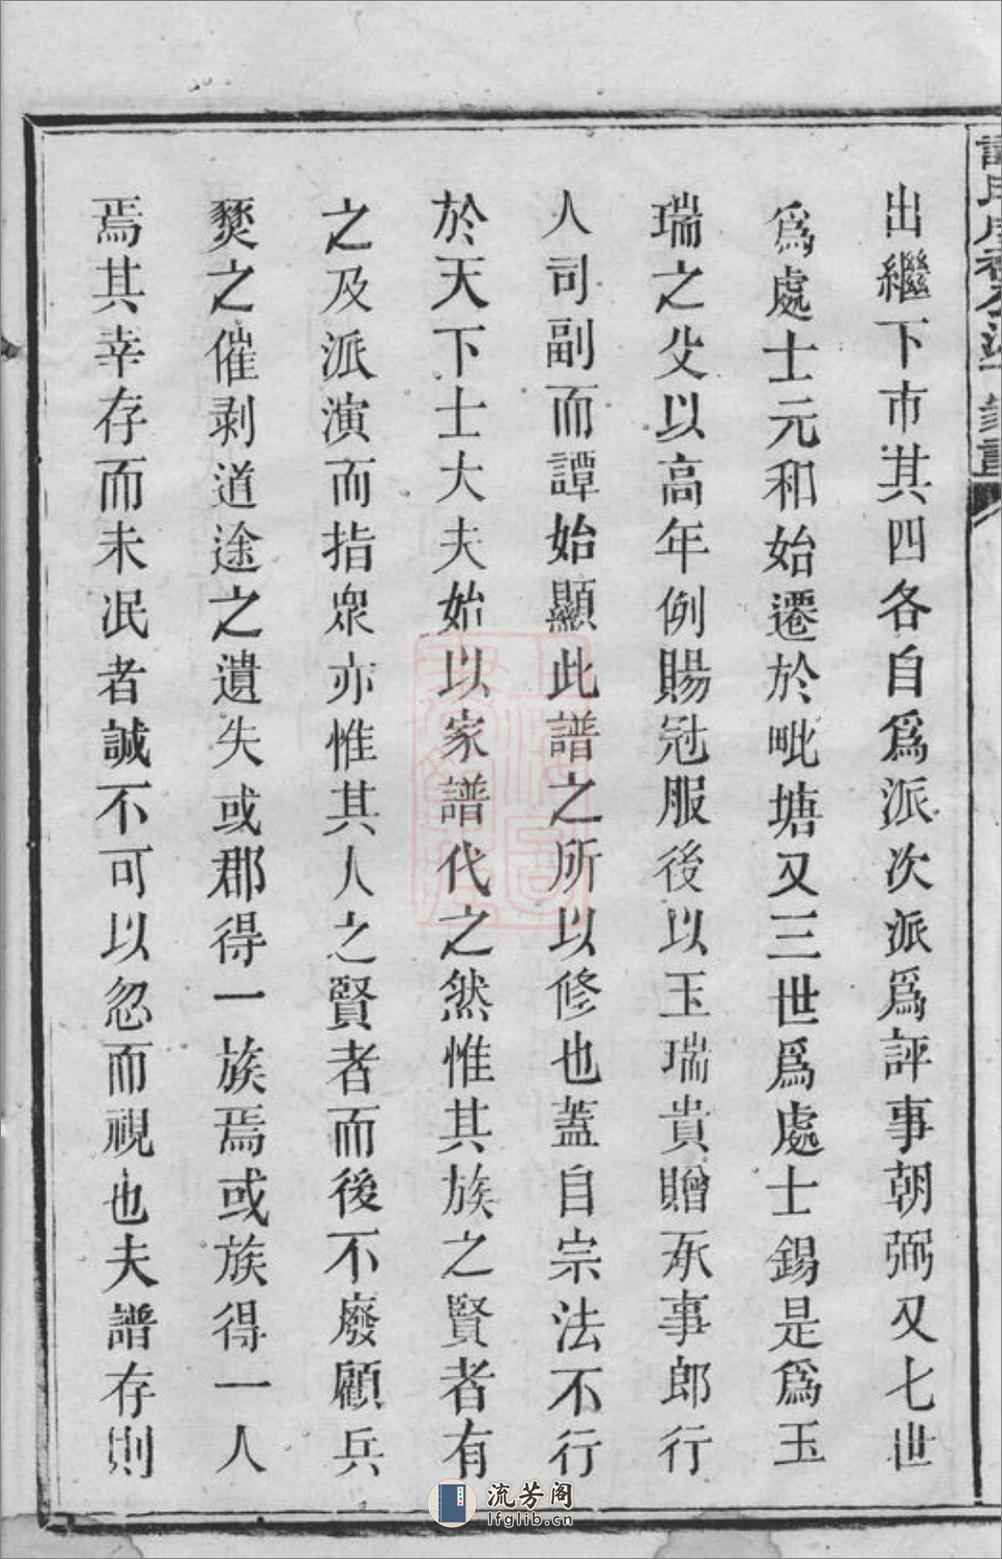 出繼下市其四各自爲派次派爲評事朝弼又七世
爲處士元和始遷於毗塘又三世爲處士錫是爲玉
瑞之父以高年例賜冠服後以玉瑞貴贈承事郎行
人司副而譚始顯此譜之所以修也蓋自宗法不行
於天下士大夫始以家譜代之然惟其族之賢者有
之及派演而指衆亦惟其人之賢者而後不廢顧兵
燹之催剥道途之遺失或郡得一族焉或族得一人
焉其幸存而未泯者誠不可以忽而視也夫譜存則
流芳阁
lfglib.cn